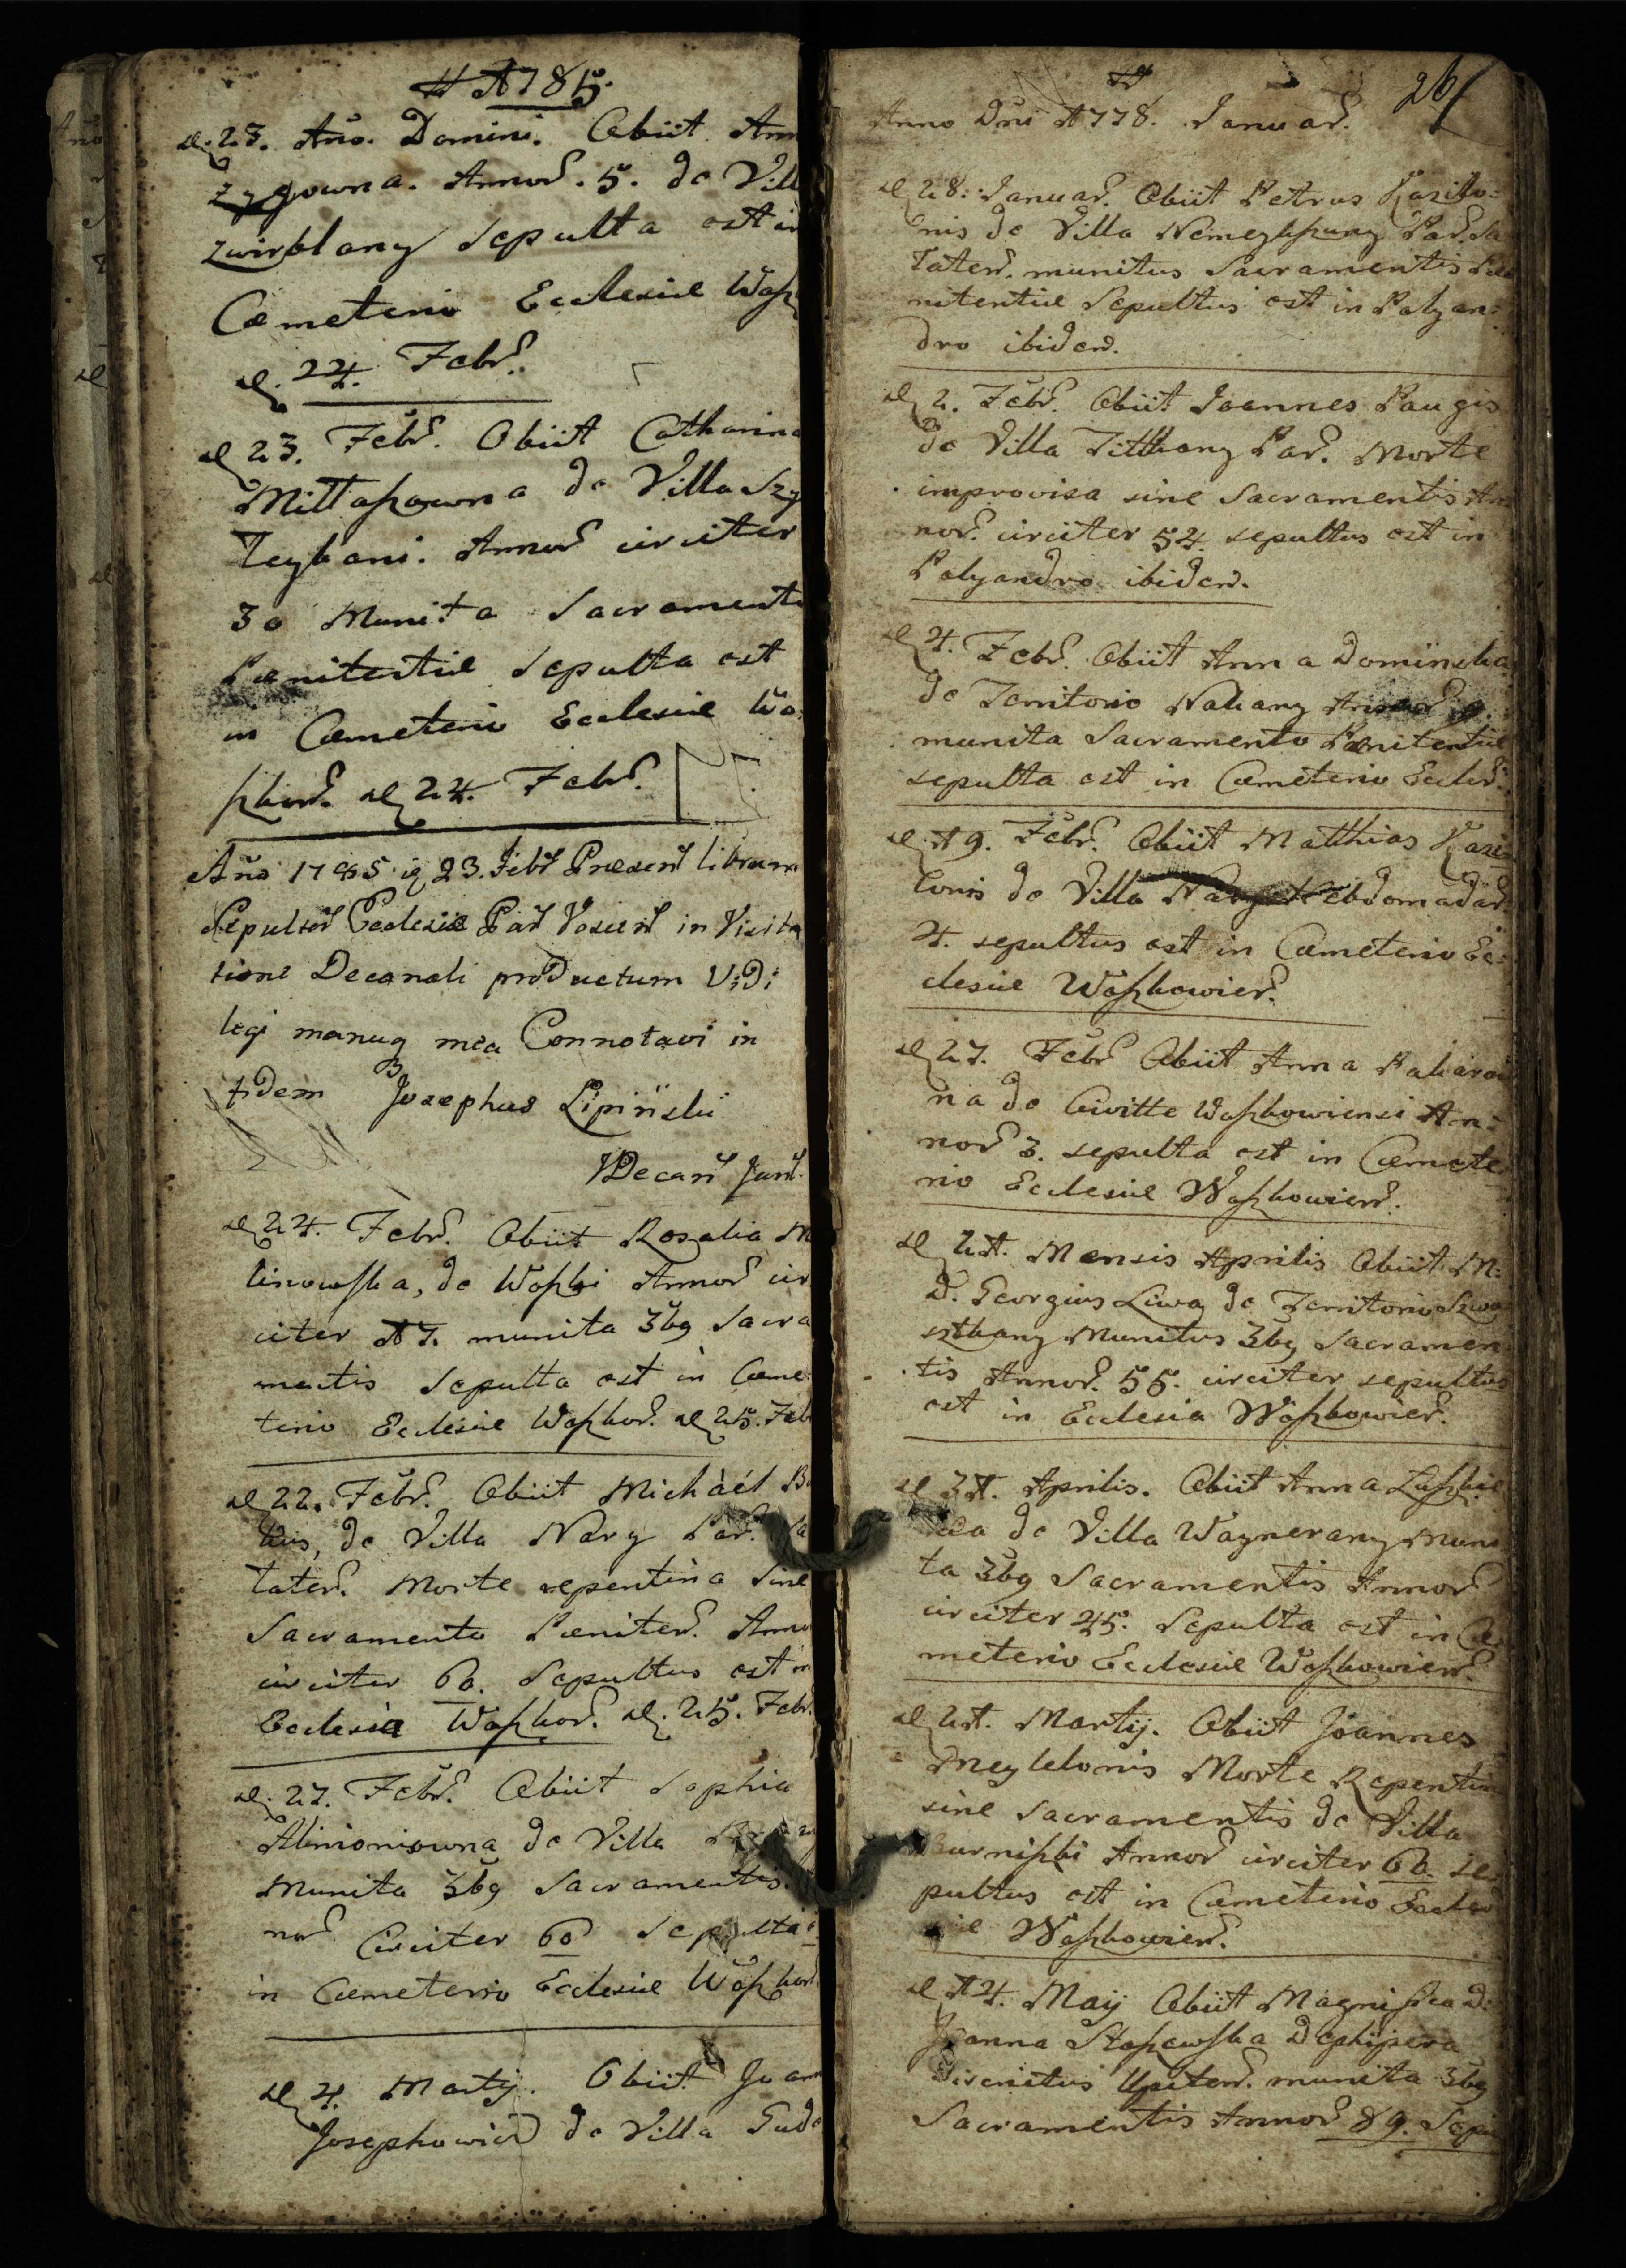 # A785.
d. 23. Año. Domini. Obiit Ann
owna. Annor. 5. de Vill
zwirblany Sepulta est in
Cæmeterio Ecclesiæ Waszk
d. 24. Febr.
d 23. Febr. Obiit Catharina
Mittaszowna de Villa Szy
Teykani. Annor circiter
30 Munita Sacramento
Pænitentiæ Sepulta est
in Cæmeterio Ecclesiæ Wa
szkor. d 24. Febr.
Año 1785 d 23. Febr Præsent librum
Sepultor Ecclesiæ Par Vascen in Visita
tione Decanali productum Vidi
legi manuq mea Connotavi in
fidem Josephus Lipiński
VDecan Jan.
d 24. Febr. Obiit Rosalia M
linowska, de Waszki Annor cir
citer A7. munita 3bq Sacra
mentis Sepulta est in Cæme
terio Ecclesiæ Waszkor. d 25. Feb
d 22. Febr. Obiit Michàél B
kis, de Villa Nary Par. Sa
later. Morte repentina Sine
Sacramento Pæniten. Anno
circiter 60. Sepultus est in
Ecclesia Waszkor. d. 25. Febr.
d. 27. Febr. Obiit Sophia
Klimoniowna de Villa
Munita 3bq Sacramentis.
nor Circiter 60 Sepulta
in Cæmeterio Ecclesiæ Waszkor
d 4. Martij. Obiit Joann
Josephowicz de Villa Gude
26
Anno Dni A778. Januar.
d 28. Januar. Obiit Petrus Kazillo=
nis de Villa Nemeykszuny Par. Sa
later. munitus Sacramentis Pæ
nitentiæ Sepultus est in Polyan=
dro ibidem.
d 2. Febr. Obiit Joannes Paugis
de Villa Titkany Par. Morte
improvisa sine Sacramentis An
nor. circiter 54. sepultus est in
Polyandro ibidem.
d 4. Febr. Obiit Anna Dominska
de Territorio Nakany Annor
munita Sacramento Pænitentiæ
sepulta est in Cæmeterio Eccler.
d A9. Febr. Obiit Matthias Kazi=
lonis de Villa Hebdomadar.
4. sepultus est in Cæmeterio Ec=
clesiæ Waszkowien.
d 27. Febr Obiit Anna
na de Civitte Waszkowiensi An=
nor 3. sepulta est in Cæmete
rio Ecclesiæ Waszkowien.
d 2A. Mensis Aprilis Obiit M:
D. Georgius Liwa de Territorio Szwo
Munitus 3bq Sacramen
tis Annor. 55. circiter sepultus
est in Ecclesia Waszkowien.
d 3A. Aprilis. Obiit Anna
de Villa Wagnerany Muni
ta 3bq Sacramentis Annor
circiter 45. Sepulta est in Cæ
meterio Ecclesiæ Waszkowien
d 2A. Martij. Obiit Joannes
Meylelonis Morte Repentin
sine Sacramentis de Villa
Burniszki Annor circiter 60. se=
pultus est in Cæmeterio Eccles
iæ Waszkowien.
d A4. Maij Obiit Magnifica D:
Joanna Staszewska Dapifera
Districtus Upiten. munita 3bq
Sacramentis Annor 89. Sepu